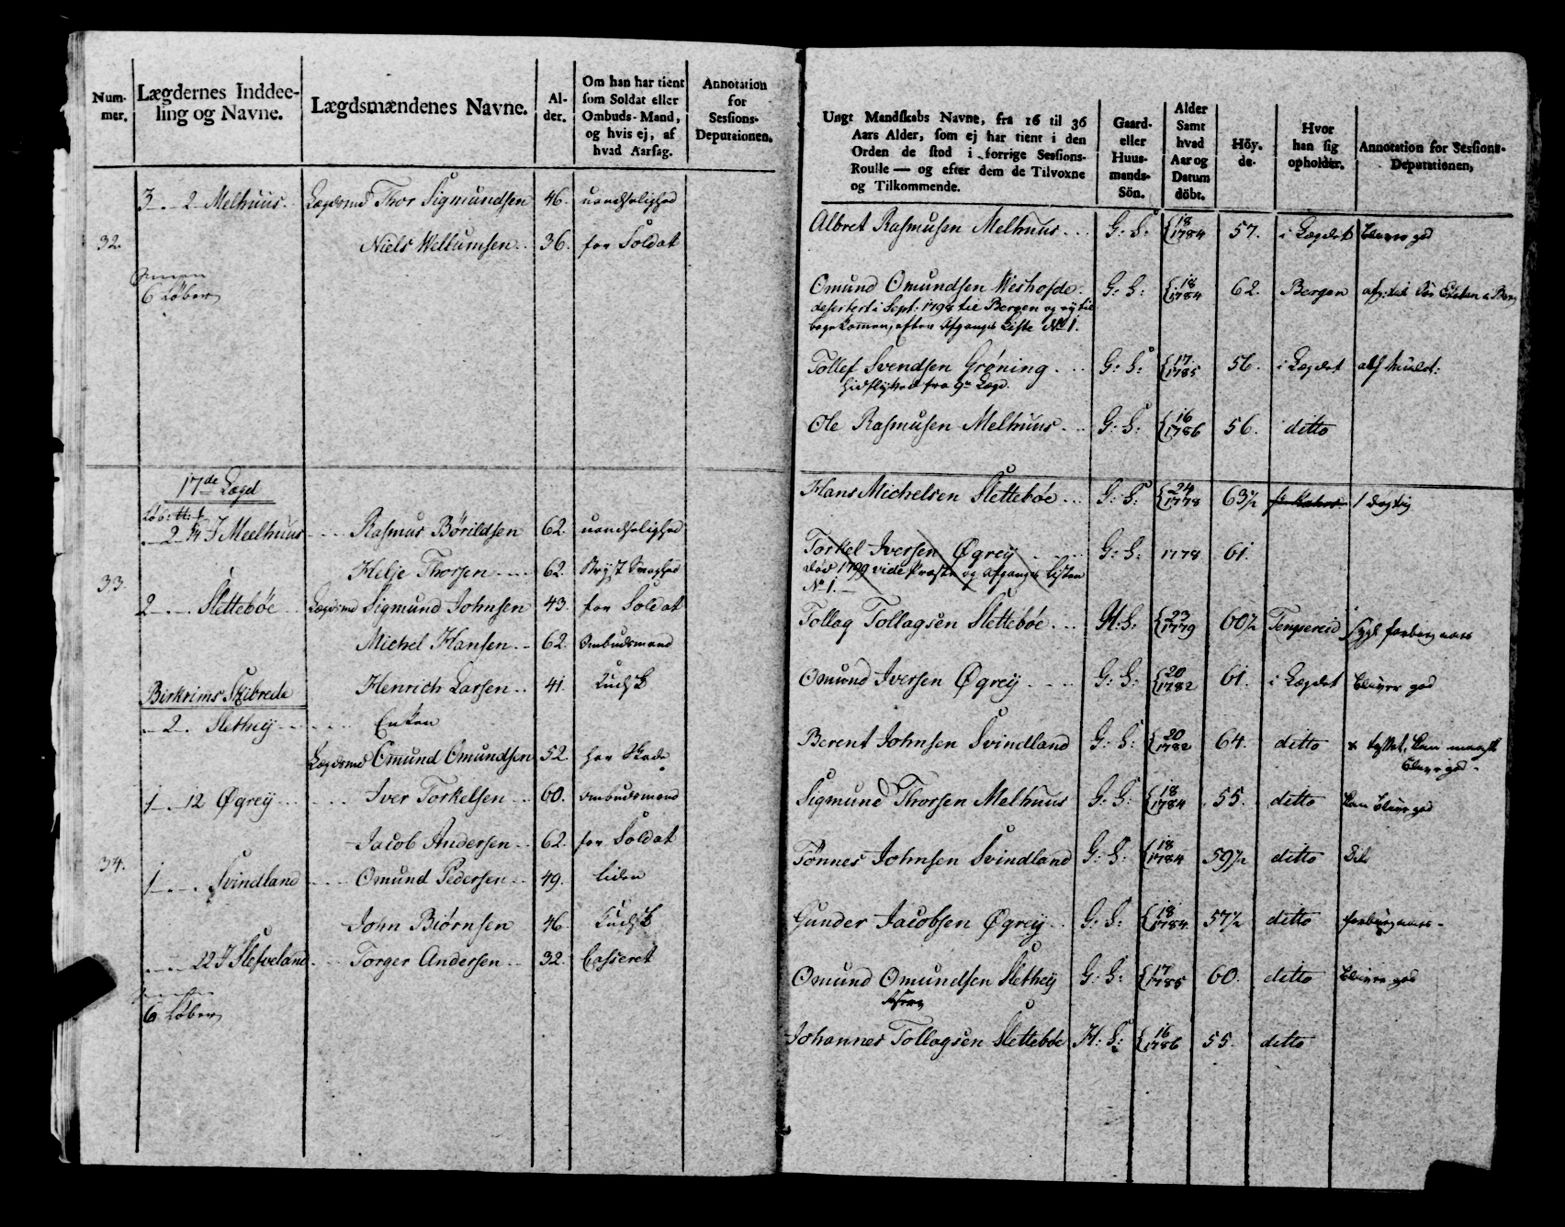 Num-
mer.
Lægdernes Inddee-
ling og Navne.
Lægdsmændenes Navne.
Al-
der.
Om han har tient
som Soldat eller
Ombuds-Mand,
og hvis ej, af
hvad Aarsag.
Annotation
for
Sessions-
Deputationen.
3 . 2 Melhuus. Lægdsmd Thor Sigmundsen 46. uandseelighed
32. Niels Wellumsen 36. for Soldat
6 Løber
17de Lægd
2 Meelhuus Rasmus Börildsen 62. uandseelighed
Helje Thorsen 62.
33.
2 Slettebøe Lægdsmd Sigmund Johnsen 43. for Soldat
Michel Hansen 62. Ombudsmand
Birkrims Skibrede Henrich Larsen 41. Kudsk
2. Sletheÿ Enken
Lægdsmd Omund Omundsen 52. har Skade
1 . 12 Øgreÿ Iver Torkelsen 60. Ombudsmand
Jacob Andersen 62. for Soldat
34.
1 Svindland Omund Pedersen 49. liden
John Biørnsen 46. Kudsk
Torger Andersen 32. Casseret
6 Løber
Ungt Mandskabs Navne, fra 16 til 36
Aars Alder, som ej har tient i den
Orden de stod i forrige Sessions-
Roulle — og efter dem de Tilvoxne
og Tilkommende.
Gaard-
eller
Huus-
mands-
Sön.
Alder
Samt
hvad
Aar og
Datum
döbt.
Höy-
de.
Hvor
han sig
opholder.
Annotation for Sessions-
Deputationen,
Albret Rasmusen Melhuus G: S: 18 1784 57. i Lægdet bliver god
Omund Omundsen Weshofde G: S: 18 1784 62. Bergen
desertert i Sept: 1798 til Bergen og ej til
bage kommen, efter Afgangs Liste No 1.
Tollef Svendsen Grøning G: S: 17 1785 56. i Lægdet
hidflyttet fra 9de Lægd.
Ole Rasmusen Melhuus G: S: 16 1786 56. ditto
Hans Michelsen Slettebøe G: S: 24 1778 63½ dygtig
Torkel Iversen Øgreÿ G: S: 1778 61.
død 1799 vide Præste og Afgangs Listen
No 1.
Tollag Tollagsen Slettebøe H: S: 23 1779 60½
Omund Iversen Øgreÿ G: S: 20 1782 61. i Lægdet bliver god
Berent Johnsen Svindland G: S: 20 1782 64. ditto
bliver god
Sigmund Thorsen Melhuus G: S: 18 1784 55. ditto kan bliver god
Tønnes Johnsen Svindland G: S: 18 1784 59½ ditto
Gunder Jacobsen Øgreÿ G: S: 18 1784 57½ ditto
Omund Omundsen Sletheÿ G: S: 17 1785 60. ditto bliver god
Johannes Tollagsen Slettebøe H: S: 16 1786 55. ditto